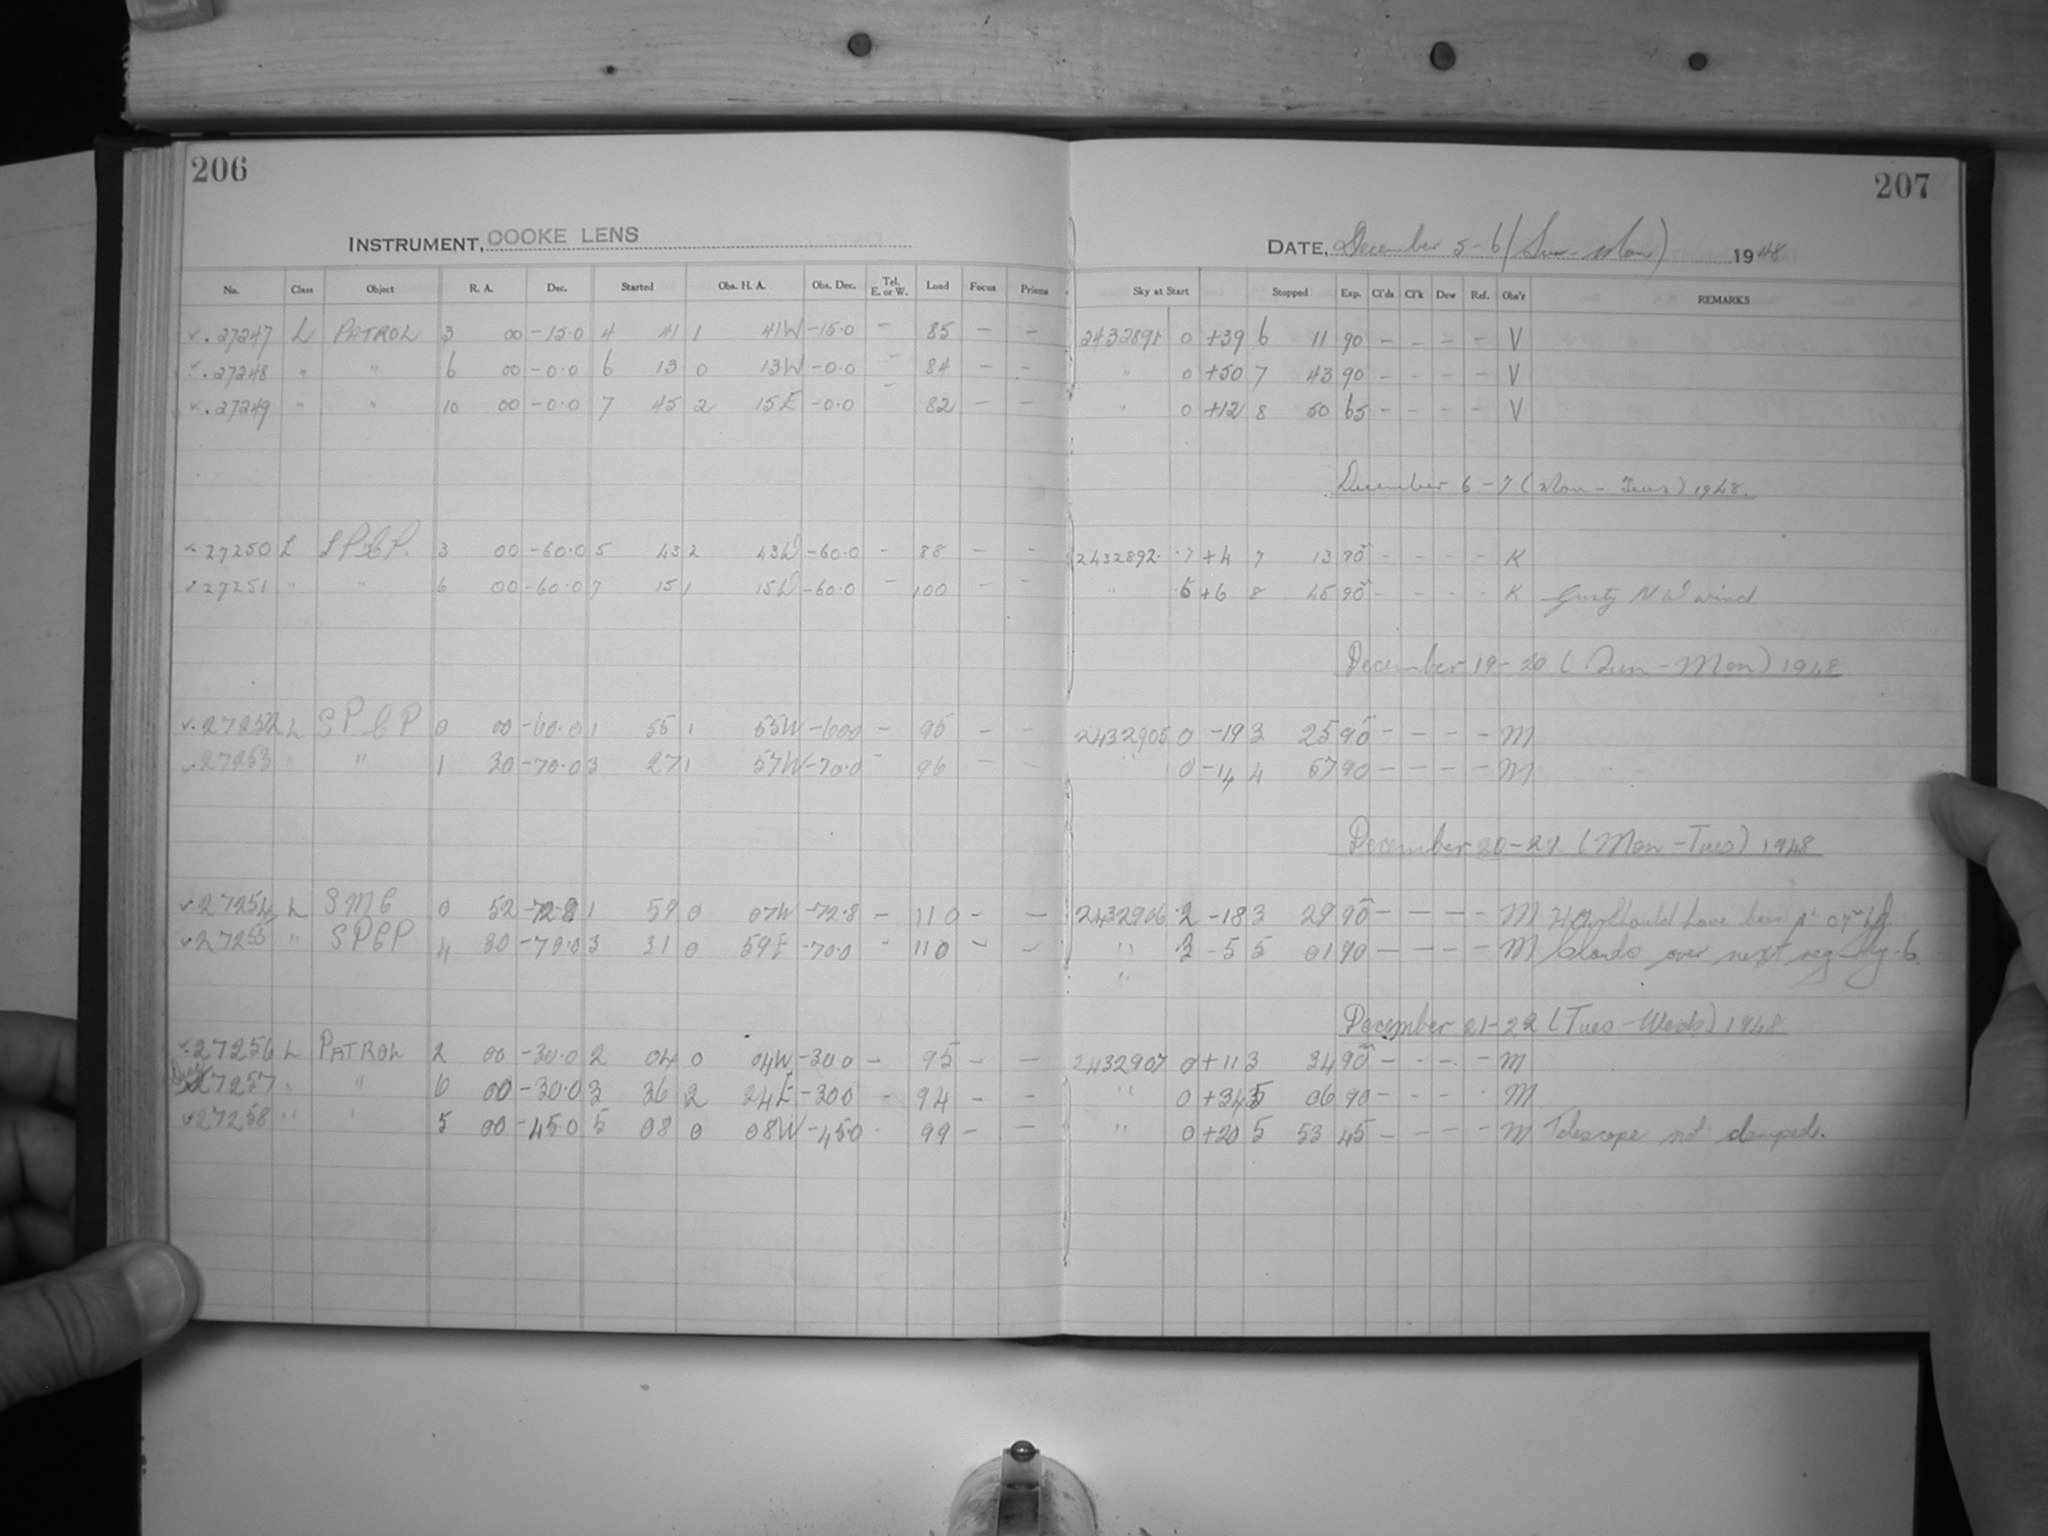 206
207
INSTRUMENT, COOKE LENS
DATE, December 5-6 (Sun-Mon) 1948
No. Class Object R. A. Dec. Started Obs. H. A. Obs. Dec. Tel. E. or W. Load Focus Prisms Sky at Start Stopped Exp. Cl'ds Cl'k Dew Ref. Obs'r REMARKS
27247 L PATROL 3 00 -15.0 4 41 1 41W -15.0 - 85 - - 2432891 0 +39 6 11 90 - - - - V
27248 " " 6 00 -0.0 6 13 0 13W -0.0 - 84 - - " 0 +50 7 43 90 - - - - V
27249 " " 10 00 -0.0 7 45 2 15E -0.0 - 82 - - " 0 +12 8 50 65 - - - - V
December 6-7 (Mon - Tues) 1948.
27250 L SPCP. 3 00 -60.0 5 43 2 43W -60.0 - 88 - - 2432892. .7 +4 7 13 90 - - - - K
27251 " " 6 00 -60.0 7 15 1 15W -60.0 - 100 - - " .5 +6 8 45 90 - - - - K Gusty N W wind
December 19-20 (Sun - Mon) 1948
27252 L SPCP 0 00 -60.0 1 55 1 55W -600 - 95 - - 2432905 0 -19 3 25 90 - - - - M
27253 " " 1 30 -70.0 3 27 1 57W -70.0 - 96 - - " 0 -14 4 57 90 - - - - M
December 20-21 (Mon - Tues) 1948
27254 L SMC 0 52 -72.8 1 59 0 07W -72.8 - 110 - - 2432906 .2 -18 3 29 90 - - - - M H.A. Should have been 1h 07m W.
27255 " SPCP 4 30 -70.0 3 31 0 59E -70.0 - 110 - - " 3 -5 5 01 90 - - - - M Clouds over next reg
"
December 21-22 (Tues - Weds) 1948
27256 L PATROL 2 00 -30.0 2 04 0 04W -300 - 95 - - 2432907 0 +11 3 34 90 - - - - M
27257 " " 6 00 -30.0 3 36 2 24E -300 - 94 - - " 0 +34 5 06 90 - - - - M
27258 " " 5 00 -45.0 5 08 0 08W -450 - 99 - - " 0 +20 5 53 45 - - - - M Telescope not clamped.